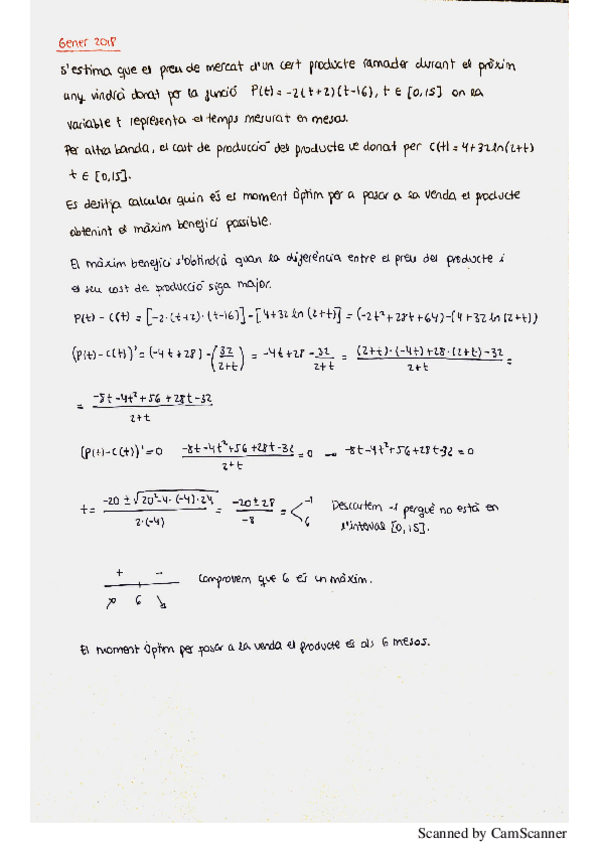 Gener 2018
S'estima que el preu de mercat d'un cert producte ramader durant el pròxim
any vindrà donat por la funció P(t) = -2(t+2)(t-16), t ∈ [0,15] on la
variable t representa el temps mesurat en mesos.
Per altra banda, el cost de producció del producte ve donat per C(t) = 4+32ln(2+t)
t ∈ [0,15].
Es desitja calcular quin és es moment Òptim per a posar a la venda el producte
obtenint el màxim benefici possible.
El màxim benefici s'obtindrà quan la diferència entre el preu del producte i
el seu cost de producció siga major.
P(t) - C(t) = [-2·(t+2)·(t-16)] - [4+32 ln (2+t)] = (-2t² + 28t + 64) - (4+32 ln (2+t))
(P(t) - C(t))' = (-4t + 28) - (32/2+t) = -4t + 28 - 32/2+t = (2+t)·(-4t)+28·(2+t)-32/2+t =
= -8t - 4t² + 56 + 28t - 32/2+t
(P(t) - C(t))' = 0 -8t - 4t² + 56 + 28t - 32/2+t = 0 → -8t - 4t² + 56 + 28t - 32 = 0
t = -20 ± √20² - 4·(-4)·24/2·(-4) = -20 ± 28/-8 = < -1 6 Descartem -1 perquè no està en
l'interval [0,15].
+ -
↗ 6 ↘ Comprovem que 6 és un màxim.
El moment Òptim per posar a la venda el producte és als 6 mesos.
Scanned by CamScanner